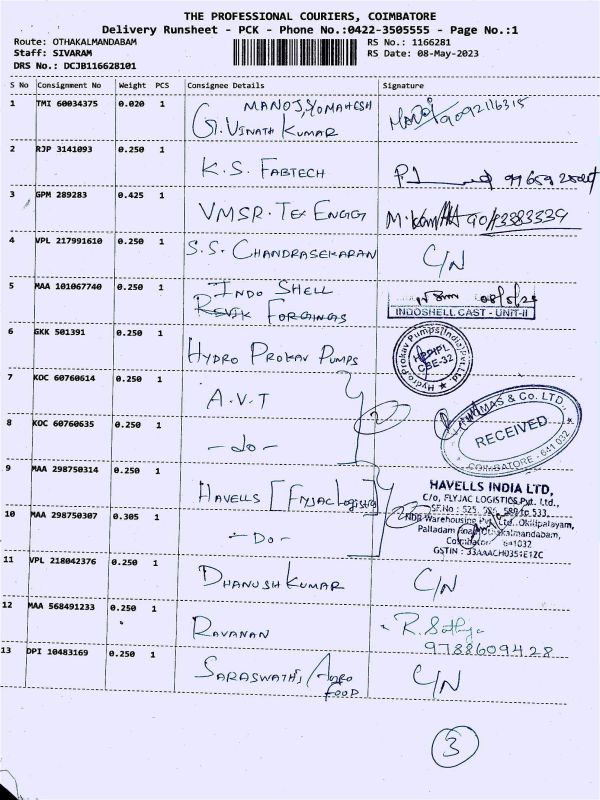 THE PROFESSIONAL COURIERS, COIMBATORE
Delivery Runsheet - PCK - Phone No.:0422-3505555 - Page No.:1
Route: OTHAKALMANDABAM
RS No.: 1166281
Staff: SIVARAM
RS Date: 08-May-2023
DRS No.: DCJB116628101
S No Consignment No Weight PCS Consignee Details Signature
1 TMI 60034375 0.020 1 MANOJ, S/O MAHESH
G. VINATH KUMAR 9092116315
2 RJP 3141093 0.250 1 K.S. FABTECH
3 GPM 289283 0.425 1 VMSR. TEX ENGG
4 VPL 217991610 0.250 1 S.S. CHANDRASEKARAN C/N
5 MAA 101067740 0.250 1 INDO SHELL
FORGINGS
INDOSHELL CAST - UNIT-II
6 GKK 501391 0.250 1 HYDRO PROKAV PUMPS
Hydro Prokav Pumps (India) Pvt. Ltd.
HPPIPL
CBE-32
7 KOC 60760614 0.250 1 A.V.T
2
8 KOC 60760635 0.250 1 -do-
MAS & Co. LTD.,
RECEIVED
COIMBATORE - 641 032
9 MAA 298750314 0.250 1 HAVELLS [FLYJAC Logistics]
HAVELLS INDIA LTD,
C/o, FLYJAC LOGISTICS Pvt. Ltd.,
10 MAA 298750307 0.305 1 -DO-
2
NDR Warehousing Pvt. Ltd. Okilipalayam,
Palladam
641032
GSTIN : 33AAACH0351E1ZC
11 VPL 218042376 0.250 1 DHANUSH KUMAR C/N
12 MAA 568491233 0.250 1 RAVANAN R. Sathya
9788609428
13 DPI 10483169 0.250 1 SARASWATHI, AGRO
FOOD C/N
3